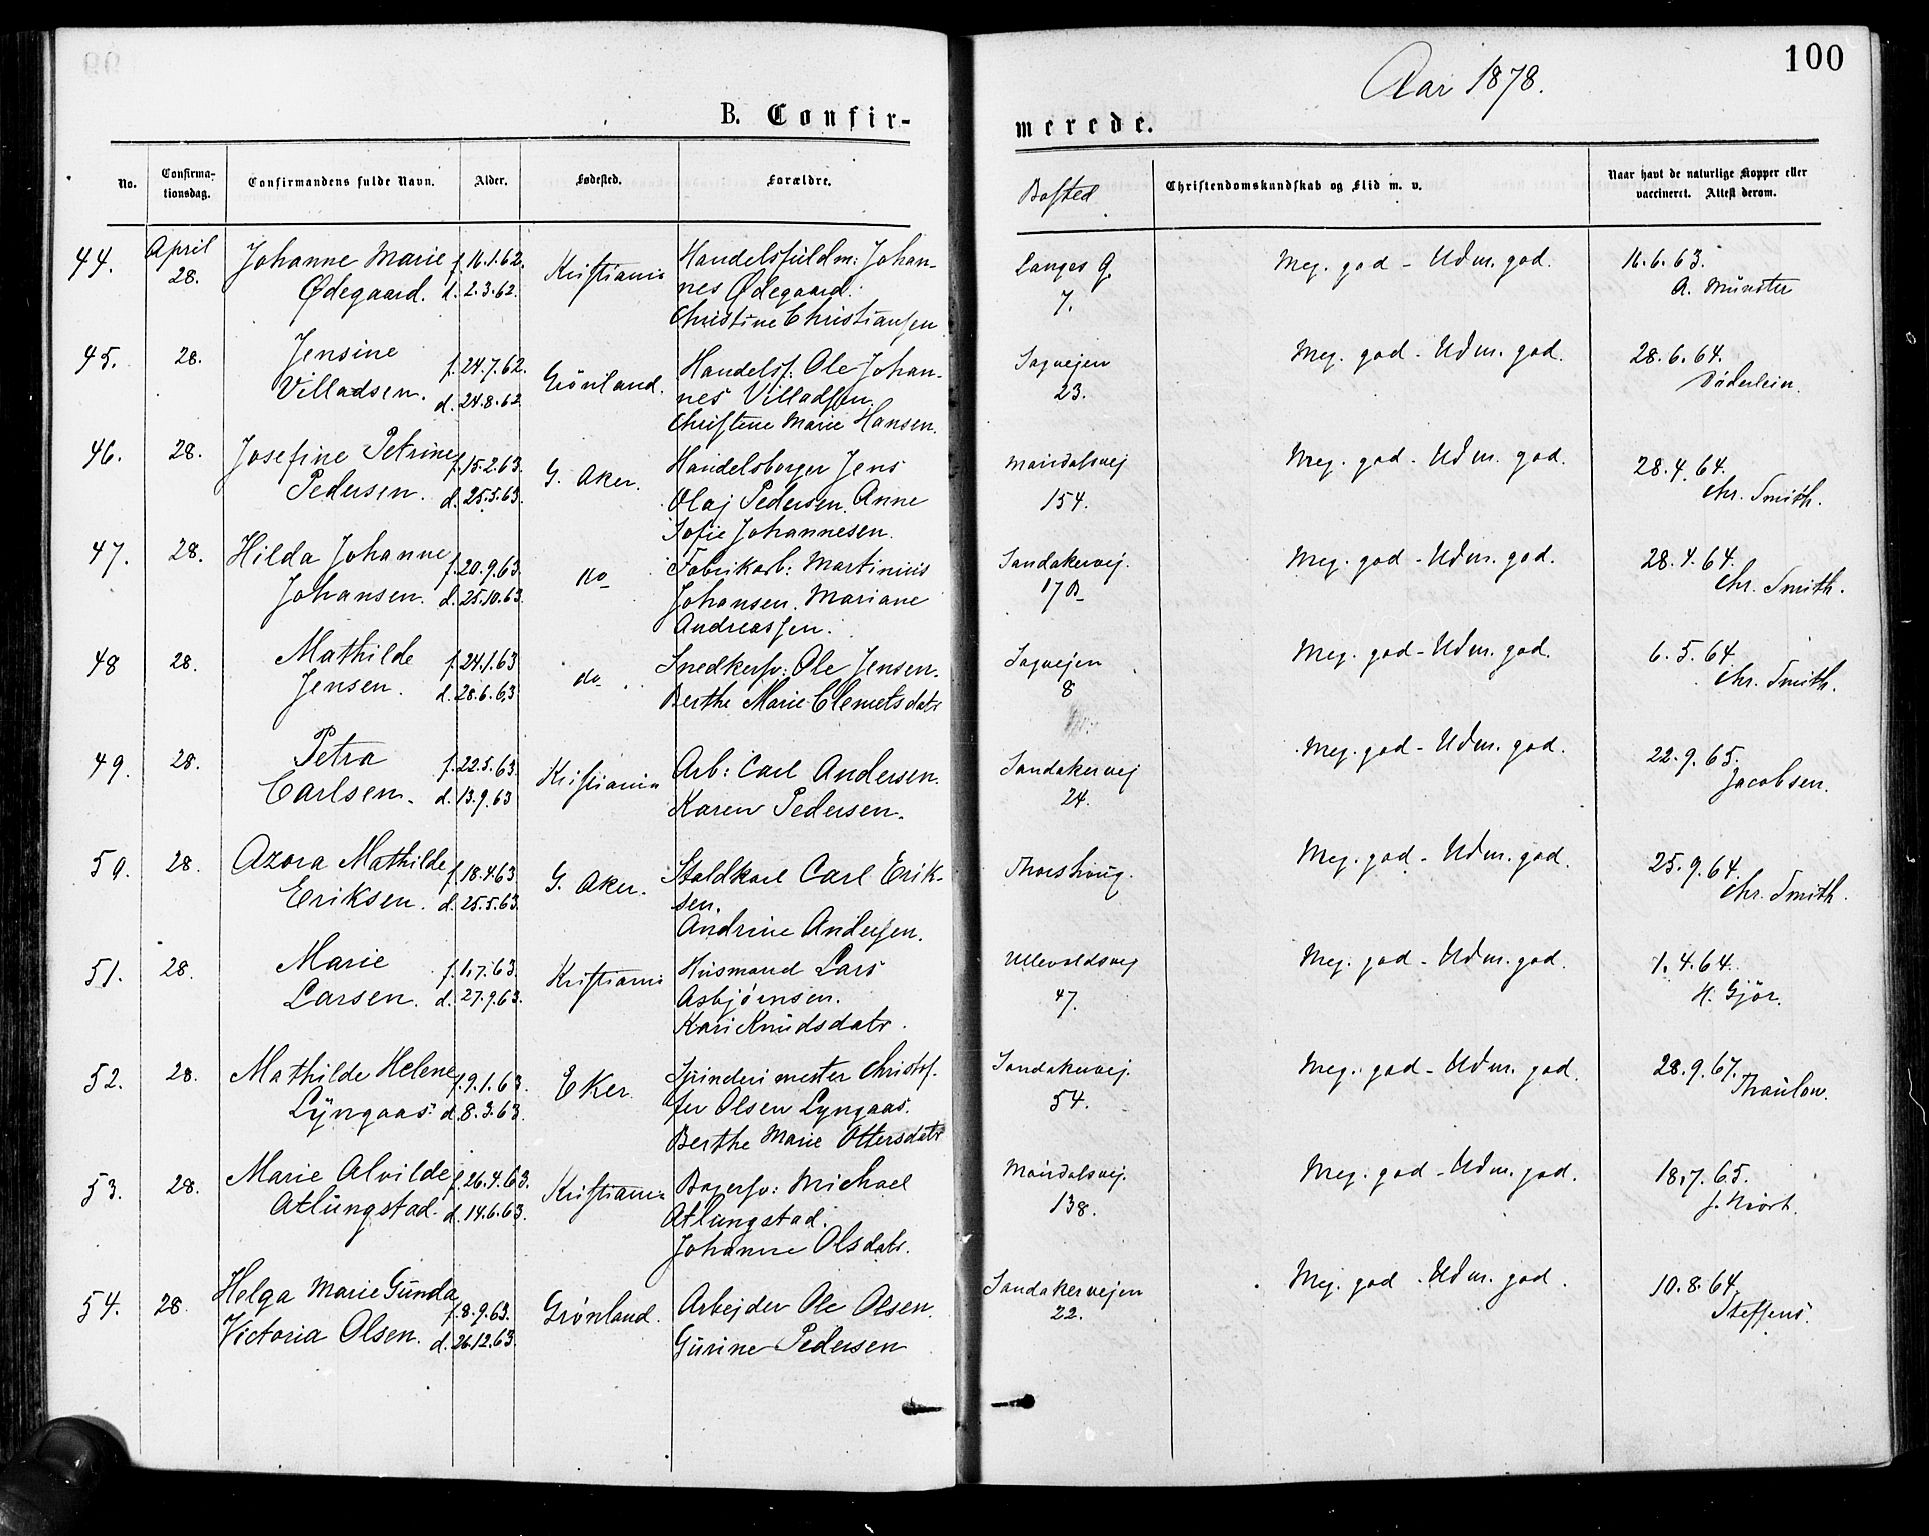 100
Aar 1878.
B. Confir-
merede.
No.
Confirma-
tionsdag.
Confirmandens fulde Navn.
Alder.
Fødested.
Forældre.
Bosted
Christendomskundskab og Flid m. v.
Naar havt de naturlige Kopper eller
vaccineret. Attest derom.
44.
April
28.
Johanne Marie
Ødegaard.
f. 16.1.62.
d. 2.3.62.
Kristiania
Handelsfuldm: Johan-
nes Ødegaard.
Christine Christiansen
Langes G.
7.
Meg. god - Udm. god.
16.6.63.
A. Münster
45.
28.
Jensine
Villadsen.
f. 24.7.62.
d. 24.8.62
Grönland.
Handelsf: Ole Johan-
nes Villadsen.
Christene Marie Hansen.
Sagvejen
23.
Meg. god - Udm. god.
28.6.64.
Döderlein.
46.
28.
Josefine Petrine
Pedersen.
f. 15.2.63.
d. 25.5.63.
G. Aker.
Handelsborger Jens
Olaj Pedersen. Anne
Sofie Johannesen.
Maridalsvej
154.
Meg. god - Udm. god.
28.4.64.
Chr. Smith.
47.
28.
Hilda Johanne
Johansen.
f. 20.9.63.
d. 25.10.63.
do
Fabrikarb: Martinius
Johansen. Mariane
Andreassen.
Sandakervej.
17B
Meg. god - Udm. god.
28.4.64.
Chr. Smith.
48
28.
Mathilde
Jensen.
f. 24.1.63
d. 28.6.63
do
Snedkersv: Ole Jensen.
Berthe Marie Clemetsdatr
Sagvejen
8
Meg. god - Udm. god.
6.5.64.
Chr. Smith.
49.
28.
Petra
Carlsen.
f. 22.5.63.
d. 13.9.63
Kristiania
Arb: Carl Andersen.
Karen Pedersen.
Sandakervej
24.
Meg. god - Udm. god.
22.9.65.
Jacobsen.
50.
28.
Azora Mathilde
Eriksen.
f. 18.4.63
d. 25.5.63.
G. Aker.
Staldkarl Carl Erik-
sen.
Andrine Andersen.
Thorshoug.
Meg. god - Udm. god.
25.9.64.
Chr. Smith.
51.
28.
Marie
Larsen.
f. 1.7.63.
d. 27.9.63.
Kristiania
Husmand Lars
Asbjørnsen.
Kari Knudsdatr.
Ullevoldsvej
47.
Meg. god - Udm. god.
1.4.64.
H. Gjör.
52.
28.
Mathilde Helene
Lyngaas.
f. 9.1.63.
d. 8.3.63.
Eker.
Spinderimester Christof-
fer Olsen Lyngaas.
Berthe Marie Ottersdatr
Sandakervej.
54.
Meg. god - Udm. god.
28.9.67.
Thaulow.
53.
28.
Marie Alvilde
Atlungstad.
f. 26.4.63.
d. 14.6.63.
Kristiania
Bagersv: Michael
Atlungstad.
Johanne Olsdatr.
Maridalsvej.
138.
Meg. god - Udm. god.
18.7.65.
54.
28
Helga Marie Gunda
Victoria Olsen.
f. 8.9.63.
d. 26.12.63.
Grönland.
Arbejder Ole Olsen.
Gurine Pedersen
Sandakervejen
22.
Meg. god - Udm. god.
10.8.64.
Steffens.